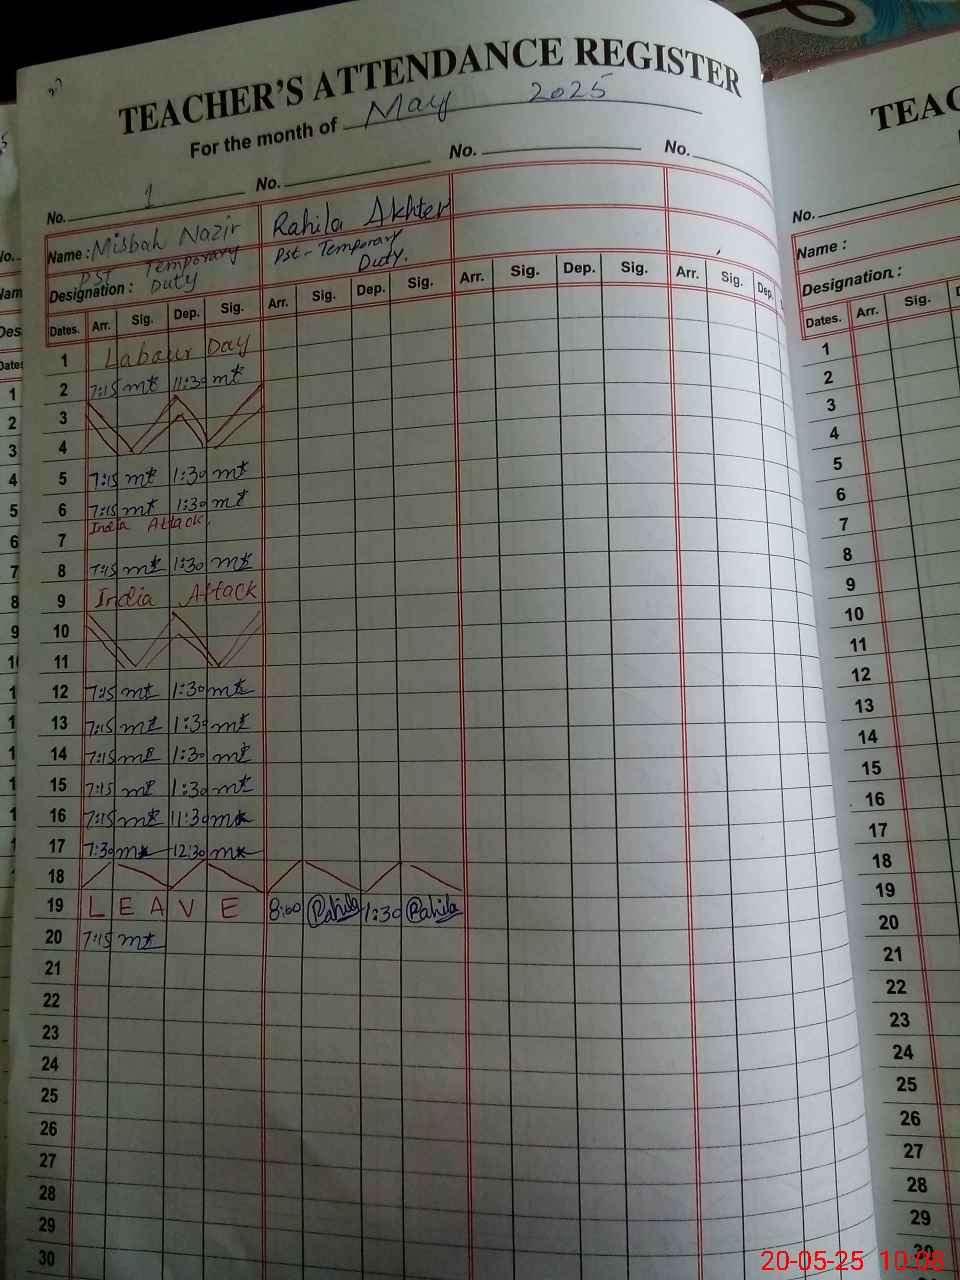 TEACHER'S ATTENDANCE REGISTER
For the month of May 2025
No. 1 No. No. No.
Name : Misbah Nazir Rahila Akhter
PST Temporary Pst - Temporary
Designation : Duty Duty.
Dates. Arr. Sig. Dep. Sig. Arr. Sig. Dep. Sig. Arr. Sig. Dep. Sig. Arr. Sig. Dep.
1 Labour Day
2 7:15 mt 11:30 mt
3
4
5 7:15 mt 1:30 mt
6 7:15 mt 1:30 mt
7 India Attack.
8 7:15 mt 1:30 mt
9 India Attack
10
11
12 7:15 mt 1:30 mt
13 7:15 mt 1:30 mt
14 7:15 mt 1:30 mt
15 7:15 mt 1:30 mt
16 7:15 mt 11:30 mt
17 7:30 mt 12:30 mt
18
19 L E A V E 8:00 Rahila 1:30 Rahila
20 7:15 mt
21
22
23
24
25
26
27
28
29
30
TEAC
No.
Name :
Designation :
Dates. Arr. Sig.
1
2
3
4
5
6
7
8
9
10
11
12
13
14
15
16
17
18
19
20
21
22
23
24
25
26
27
28
29
30
20-05-25 10:08